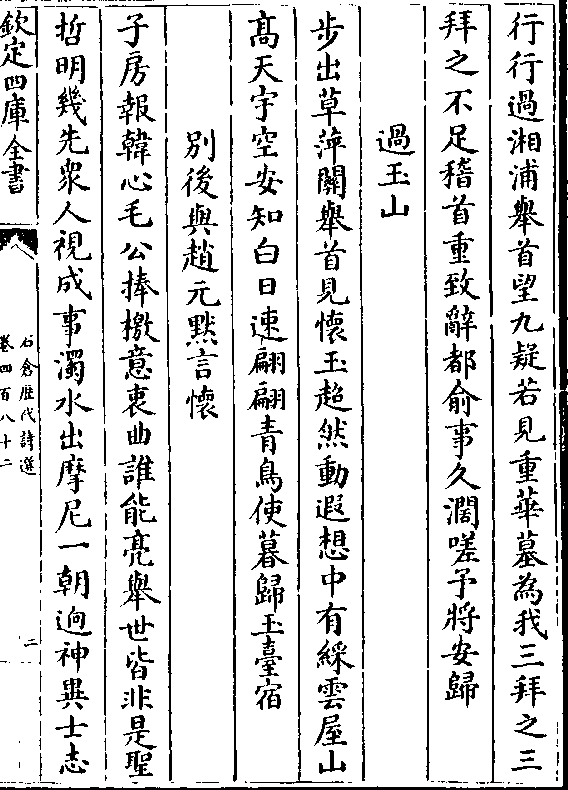 行行過湘浦舉首望九疑若見重華墓為我三拜之三
拜之不足稽首重致辭都俞事久濶嗟予將安歸
過玉山
步出草萍關舉首見懷玉超然動遐想中有綵雲屋山
髙天宇空安知白日速翩翩青鳥使暮歸玉臺宿
别後與趙元默言懷
子房報韓心毛公捧檄意衷曲誰能亮舉世皆非是聖
哲明幾先衆人視成事濁水出摩尼一朝逈神異士志
欽定四庫全書
石倉歴代詩選
卷四百八十二
二